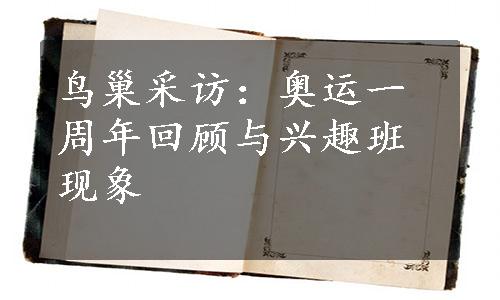 鸟巢采访：奥运一
周年回顾与兴趣班
现象